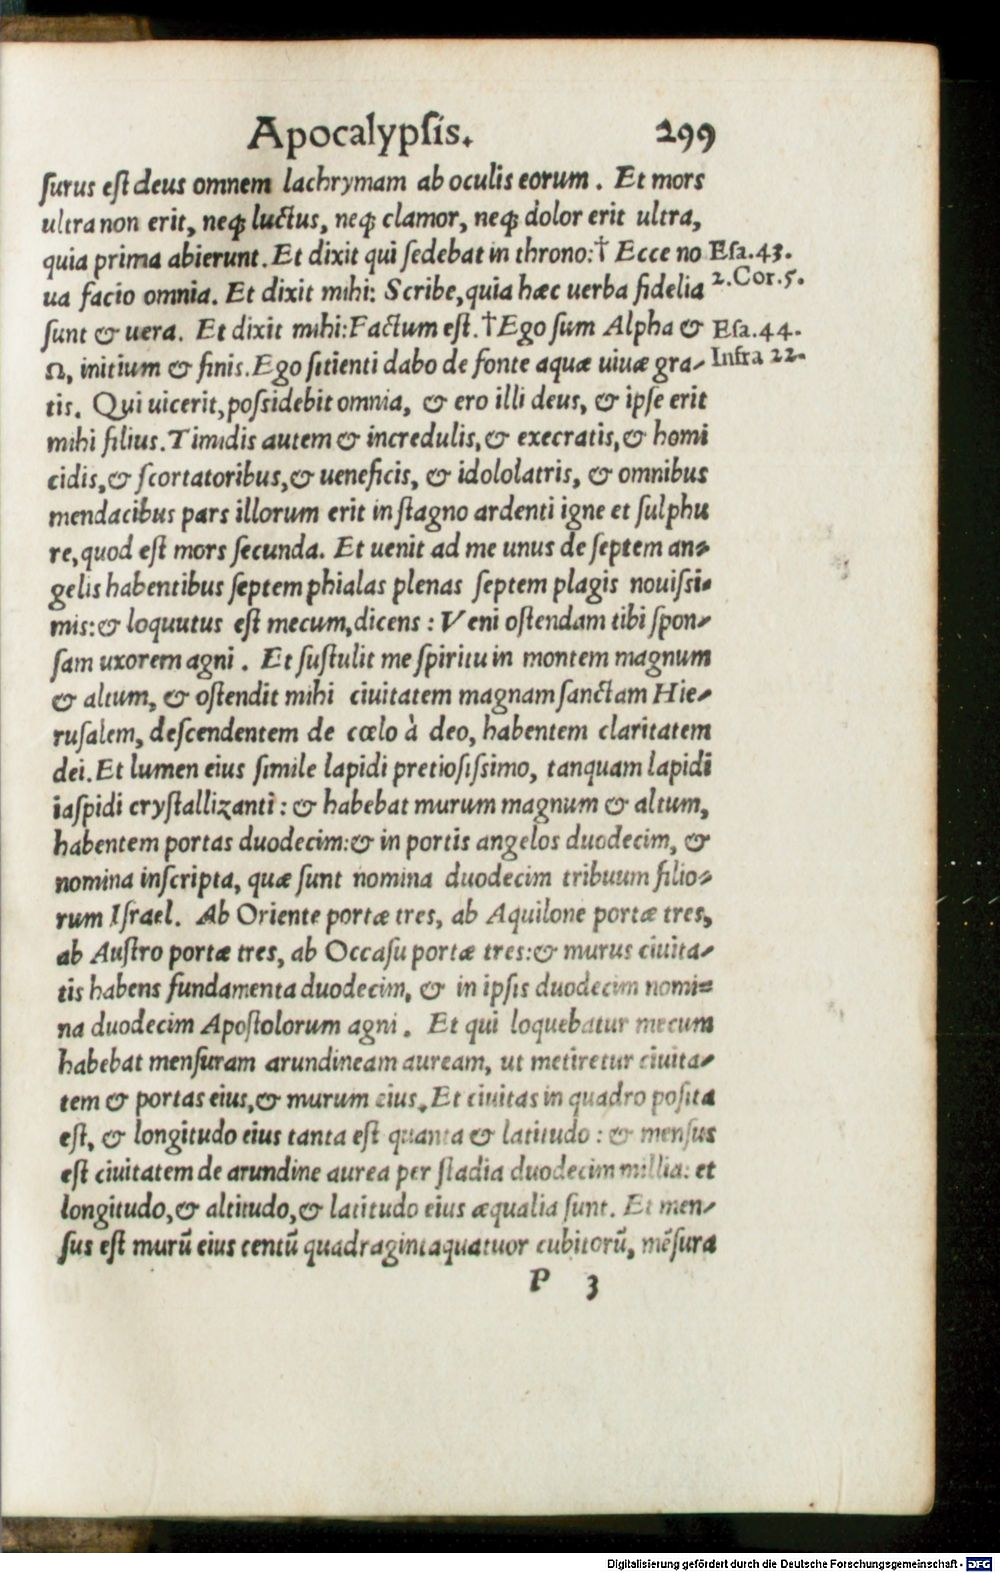 Apocalypsis. 299
ſurus eſt deus omnem lachrymam ab oculis eorum. Et mors
ultra non erit, neq; luctus, neq; clamor, neq; dolor erit ultra,
quia prima abierunt. Et dixit qui ſedebat in throno:† Ecce no Eſa.43.
ua facio omnia. Et dixit mihi: Scribe, quia hæc uerba fidelia 2.Cor.5.
ſunt & uera. Et dixit mihi: Factum eſt. †Ego ſum Alpha & Eſa.44.
Ω, initium & finis. Ego ſitienti dabo de fonte aquæ uiuæ gra- Infra 22.
tis. Qui uicerit, poſſidebit omnia, & ero illi deus, & ipſe erit
mihi filius. Timidis autem & incredulis, & execratis, & homi
cidis, & ſcortatoribus, & ueneficis, & idololatris, & omnibus
mendacibus pars illorum erit in ſtagno ardenti igne et ſulphu
re, quod eſt mors ſecunda. Et uenit ad me unus de ſeptem an-
gelis habentibus ſeptem phialas plenas ſeptem plagis nouiſsi-
mis: & loquutus eſt mecum, dicens: Veni oſtendam tibi ſpon-
ſam uxorem agni. Et ſuſtulit me ſpiritu in montem magnum
& altum, & oſtendit mihi ciuitatem magnam ſanctam Hie-
ruſalem, deſcendentem de cœlo à deo, habentem claritatem
dei. Et lumen eius ſimile lapidi pretioſiſsimo, tanquam lapidi
iaſpidi cryſtallizanti: & habebat murum magnum & altum,
habentem portas duodecim: & in portis angelos duodecim, &
nomina inſcripta, quæ ſunt nomina duodecim tribuum filio-
rum Iſrael. Ab Oriente portæ tres, ab Aquilone portæ tres,
ab Auſtro portæ tres, ab Occaſu portæ tres: & murus ciuita-
tis habens fundamenta duodecim, & in ipſis duodecim nomi-
na duodecim Apoſtolorum agni. Et qui loquebatur mecum
habebat menſuram arundineam auream, ut metiretur ciuita-
tem & portas eius, & murum eius. Et ciuitas in quadro poſita
eſt, & longitudo eius tanta eſt quanta & latitudo: & menſus
eſt ciuitatem de arundine aurea per ſtadia duodecim millia: et
longitudo, & altitudo, & latitudo eius æqualia ſunt. Et men-
ſus eſt murū eius centū quadragintaquatuor cubitorū, mēſura
P 3
Digitalisierung gefördert durch die Deutsche Forschungsgemeinschaft - DFG